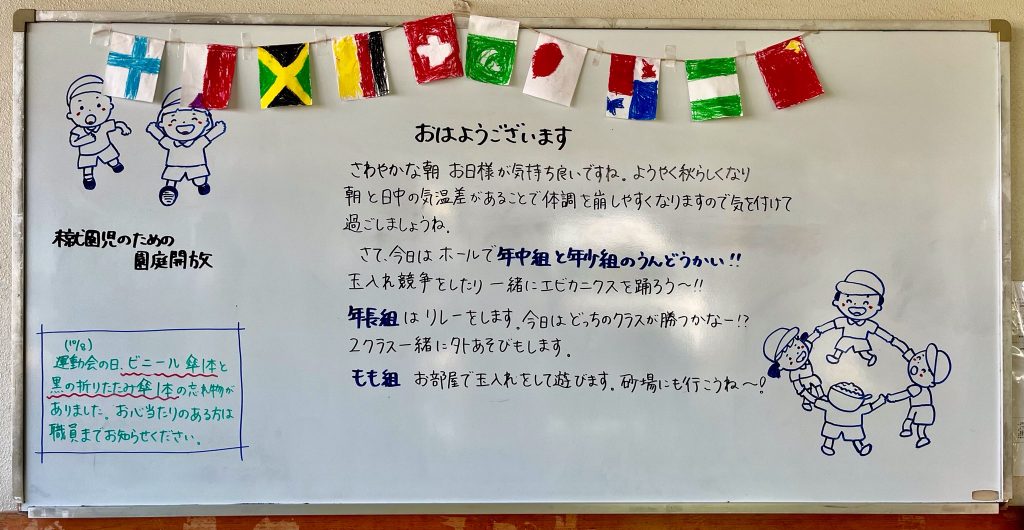 おはようございます
さわやかな朝 お日様が気持ち良いですね。ようやく秋らしくなり
朝と日中の気温差があることで体調を崩しやすくなりますので気を付けて
過ごしましょうね。
さて、今日は ホールで 年中組と年少組のうんどうかい!!
玉入れ競争をしたり 一緒にエビカニクスを踊ろう〜!!
年長組 は リレーをします。今日はどっちのクラスが勝つかなー!?
2クラス一緒に外あそびもします。
もも組 お部屋で玉入れをして遊びます。砂場にも行こうね〜!
稼就園児のための
園庭開放
(10/8)
運動会の日、ビニール傘1本と
黒の折りたたみ傘1本の忘れ物が
ありました。お心当たりのある方は
職員までお知らせください。